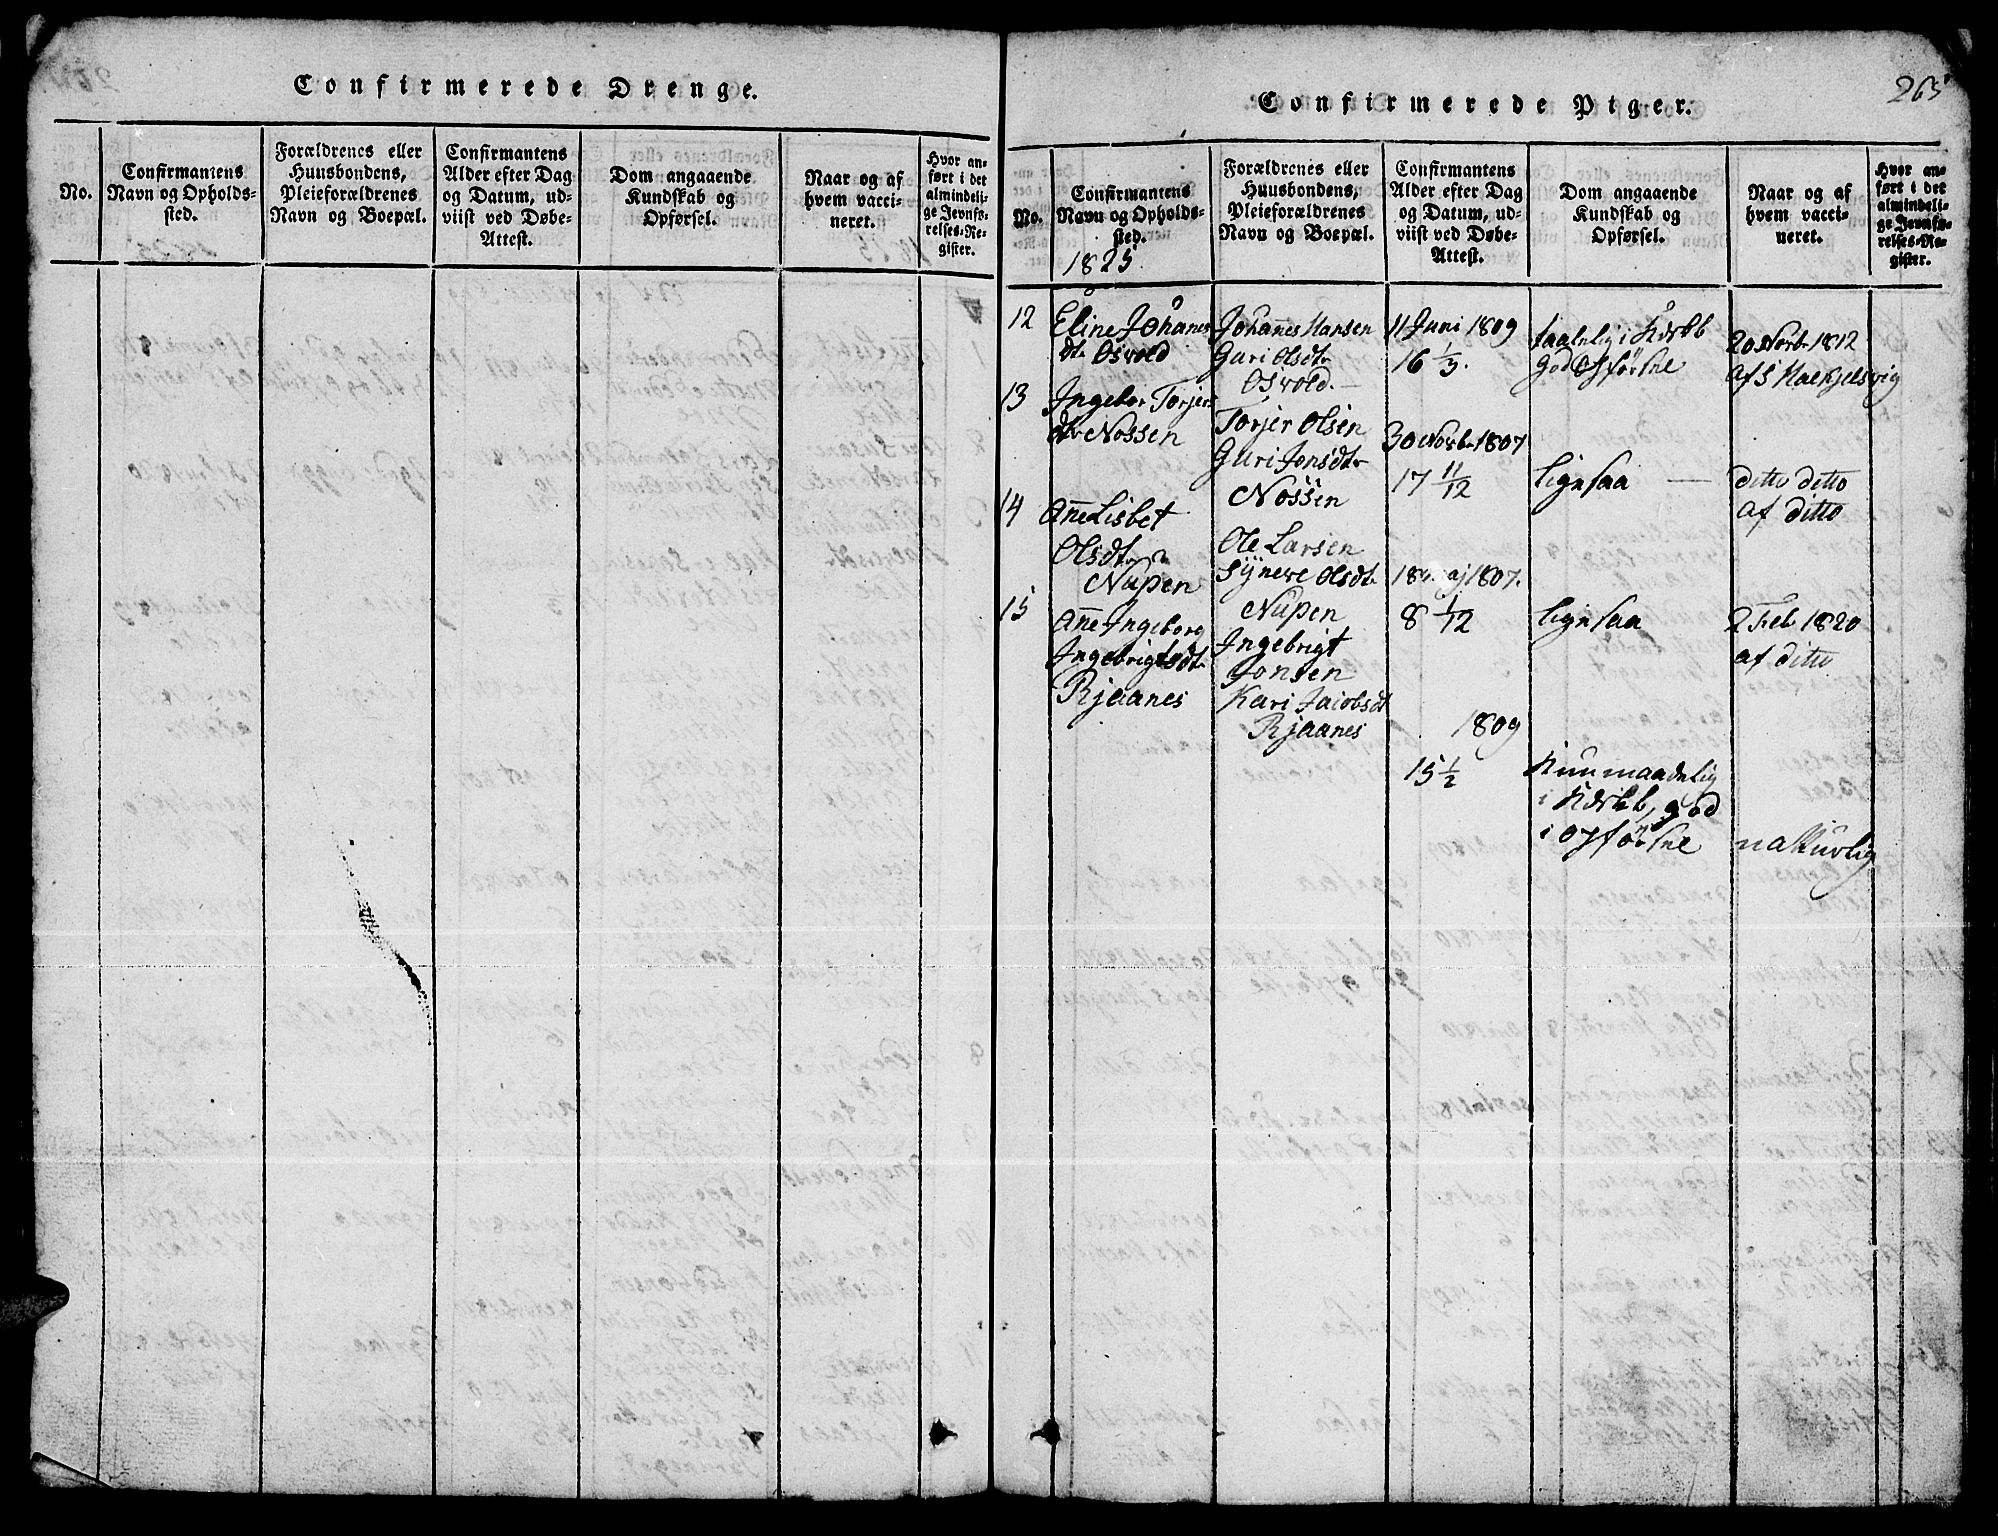 Confirmerede Drenge.
No.
Confirmantens
Navn og Opholds-
sted.
Forældrenes eller
Huusbondens,
Pleieforældrenes
Navn og Boepæl.
Confirmantens
Alder efter Dag
og Datum, ud-
viist ved Døbe-
Attest.
Dom angaaende
Kundskab og
Opførsel.
Naar og af
hvem vacci-
neret.
Hvor an-
ført i det
almindeli-
ge Jevnfø-
relses-Re-
gister.
265
Confirmerede Piger.
No.
Confirmantens
Navn og Opholds-
sted.
1825.
Forældrenes eller
Huusbondens,
Pleieforældrenes
Navn og Boepæl.
Confirmantens
Alder efter Dag
og Datum, ud-
viist ved Døbe-
Attest.
Dom angaaende
Kundskab og
Opførsel.
Naar og af
hvem vacci-
neret.
Hvor an-
ført i det
almindeli-
ge Jevnfø-
relses-Re-
gister.
12
Eline Johanes
dtr Osvold
Johannes Hansen
Guri Olsdtr
Osvold.
11 Juni 1809
16 1/3.
taalelig i Kdskb
god Opførsle
20 Novbr 1812
af S Maekjelsvig
13
Ingebor Torjers
dtr Nossen
Torjer Olsen
Guri Jonsdtr
Nossen
30 Novbr 1807
17 11/12
ligesaa
ditto ditto
af ditto
14
Anne Lisbet
Olsdtr
Nupen
Ole Larsen
Syneve Olsdtr
Nupen
18 Maj 1807.
8 1/12
ligesaa
2 Feb 1820
af ditto
15
Anne Ingeborg
Ingebrigtsdtr
Rjaanes
Ingebrigt
Jonsen
Kari Jacobsdt
Rjaanes
1809
15 1/2
Kun maadelig
i Kdskb, god
i opførsle
naturlig